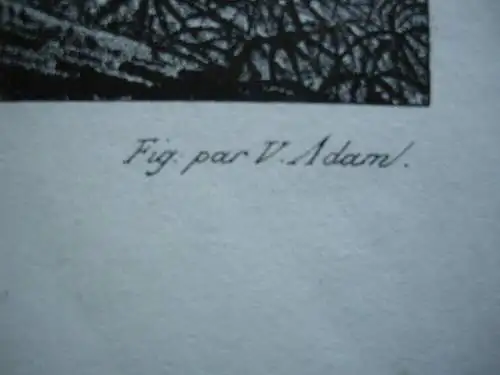 Fig. par V. Adam.